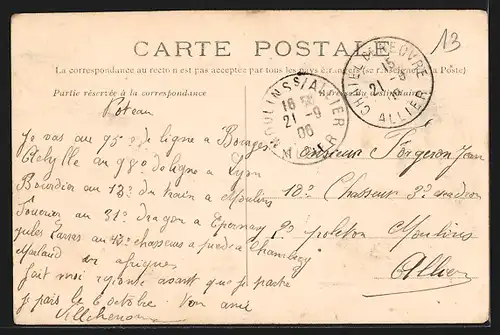 13
CARTE POSTALE
La correspondance au recto n'est pas acceptée par tous les pays étrangers (se renseigner à la Poste)
Partie réservée à la correspondance
Adresse du destinataire
MOULINS S/ALLIER
16
21 -9
06
ALLIER
CHATEL DE NEUVRE
15
21 -9
ALLIER
Poteau
Je vas au 95e de ligne a Bourges
au 98e de ligne a Lyon
Bourdier au 13e du train a Moulins
au 31e dragon a Epernay
jules au chasseurs a pied a Chambery
en afrique
fait moi reponse avant que je partre
je pars le 6 octobre Ton ami
Monsieur Forgeron Jean
10e Chasseur 3e
2e peloton Moulins
Allier